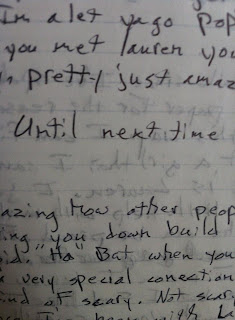 Im a let yago Pop
you met lauren you
pretty just amaz
Until next time
azing How other peop
ing "you" down build
id. "Ha" But when you
a very special conection
nd of scary. Not scar